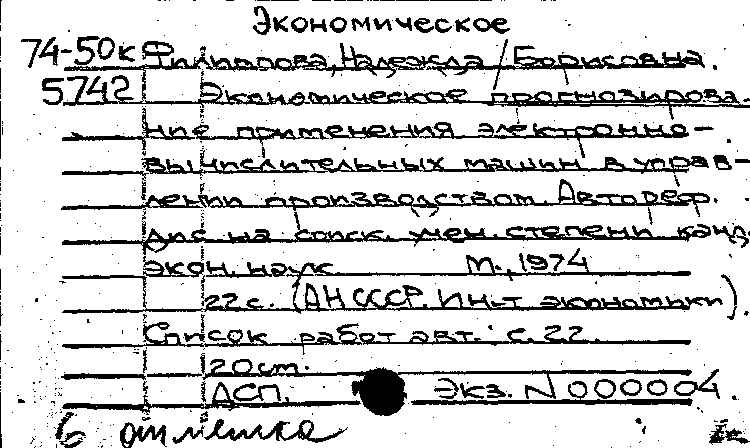 Экономическое
74-50к Филиппова, Надежда Борисовна.
5742 Экономическое прогнозирова-
ние применения электронно-
вычислительных машин в управ-
лении производством. Автореф.
дис. на соиск. учен. степени канд.
экон. наук. М., 1974
22 с. (АН СССР. Ин-т экономики).
Список работ авт.: с. 22.
20 ст.
ДСП. Экз. N 000004.
б отметка